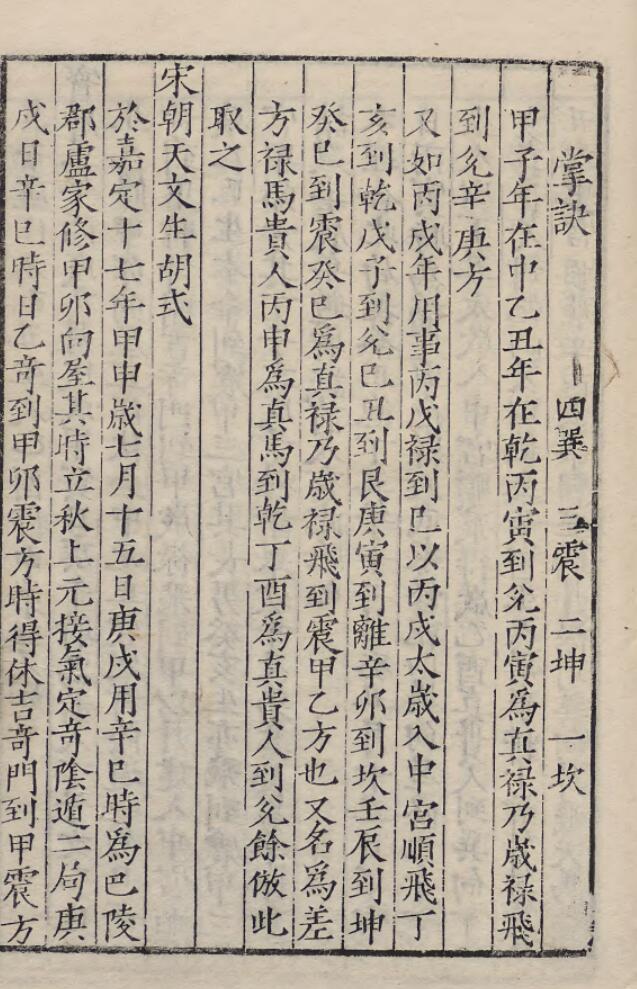 掌訣 四巽 三震 二坤 一坎
甲子年在中乙丑年在乾丙寅到兊丙寅為真禄乃歲禄飛
到兊辛庚方
又如丙戍年用事丙戊禄到巳以丙戍太歲入中宮順飛丁
亥到乾戊子到兊巳丑到艮庚寅到離辛卯到坎壬辰到坤
癸巳到震癸巳爲真禄乃歲禄飛到震甲乙方也又名為差
方禄馬貴人丙申為真馬到乾丁酉為真貴人到兊餘倣此
取之
宋朝天文生胡式
於嘉定十七年甲申歲七月十五日庚戍用辛巳時爲巴陵
郡盧家修甲卯向屋其時立秋上元接氣定奇陰遁二局庚
戍日辛巳時日乙奇到甲卯震方時得休吉奇門到甲震方